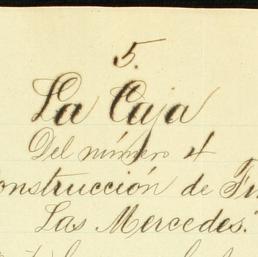 5.
La Caja
Del número 4
onstrucción de
Las Mercedes."